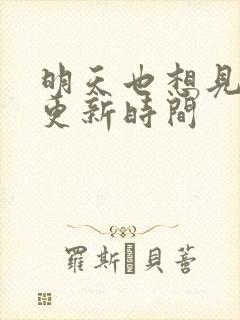 明天也想見
更新時間
羅斯 貝蒼